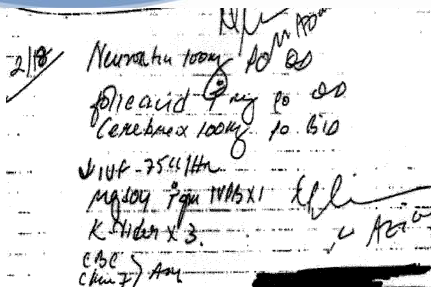 2/18
Neurontin 100mg PO QD
folic acid 1 mg po QD
Cerebrex 100mg po BID
↓ IVF - 75cc/Hr
MgSO4 1gm IVPB x 1
K Rider x 3
CBC
Chem 7 } Am